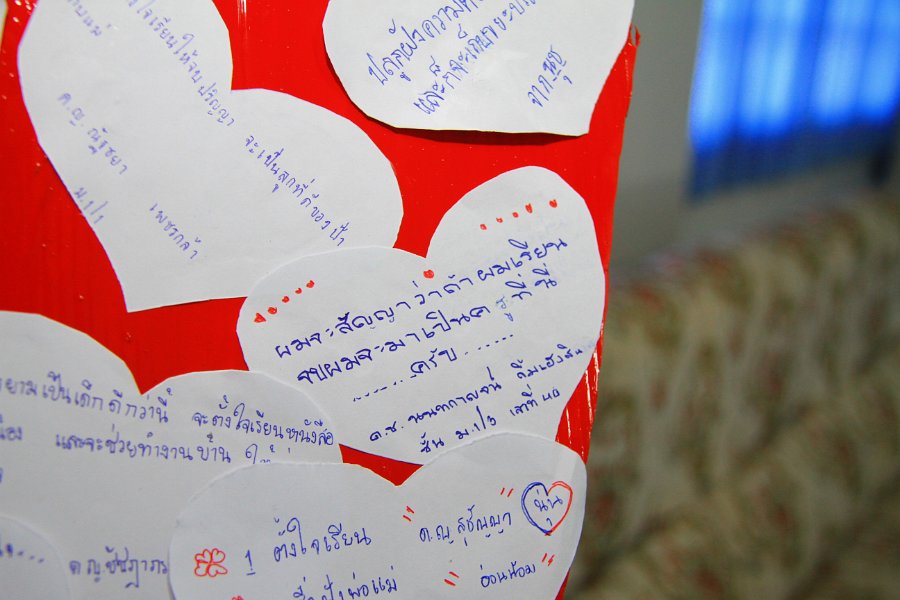 ใจเรียนให้จบปริญญา
จะเป็นลูกที่ดีของป๋า
ด.ญ. ณัฐชยา
เพชรกล้า
ม.1/1
ปลูกฝังความ
และก็จะเก็บขยะ
จาก นุช
ผมจะสัญญาว่าถ้าผมเรียน
จบผมจะมาเป็นครูที่นี่
.......ครับ.......
ด.ช. นนทกาลจน์
ชั้น ม.1/3 เลขที่ 40
ยามเป็นเด็กดีกว่านี้ จะตั้งใจเรียนหนังสือ
และจะช่วยทำงานบ้าน
ด.ญ.ชัชฎาภร
1 ตั้งใจเรียน
เชื่อฟังพ่อแม่
ด.ญ. สุชัญญา
นุ่น
อ่อนน้อม